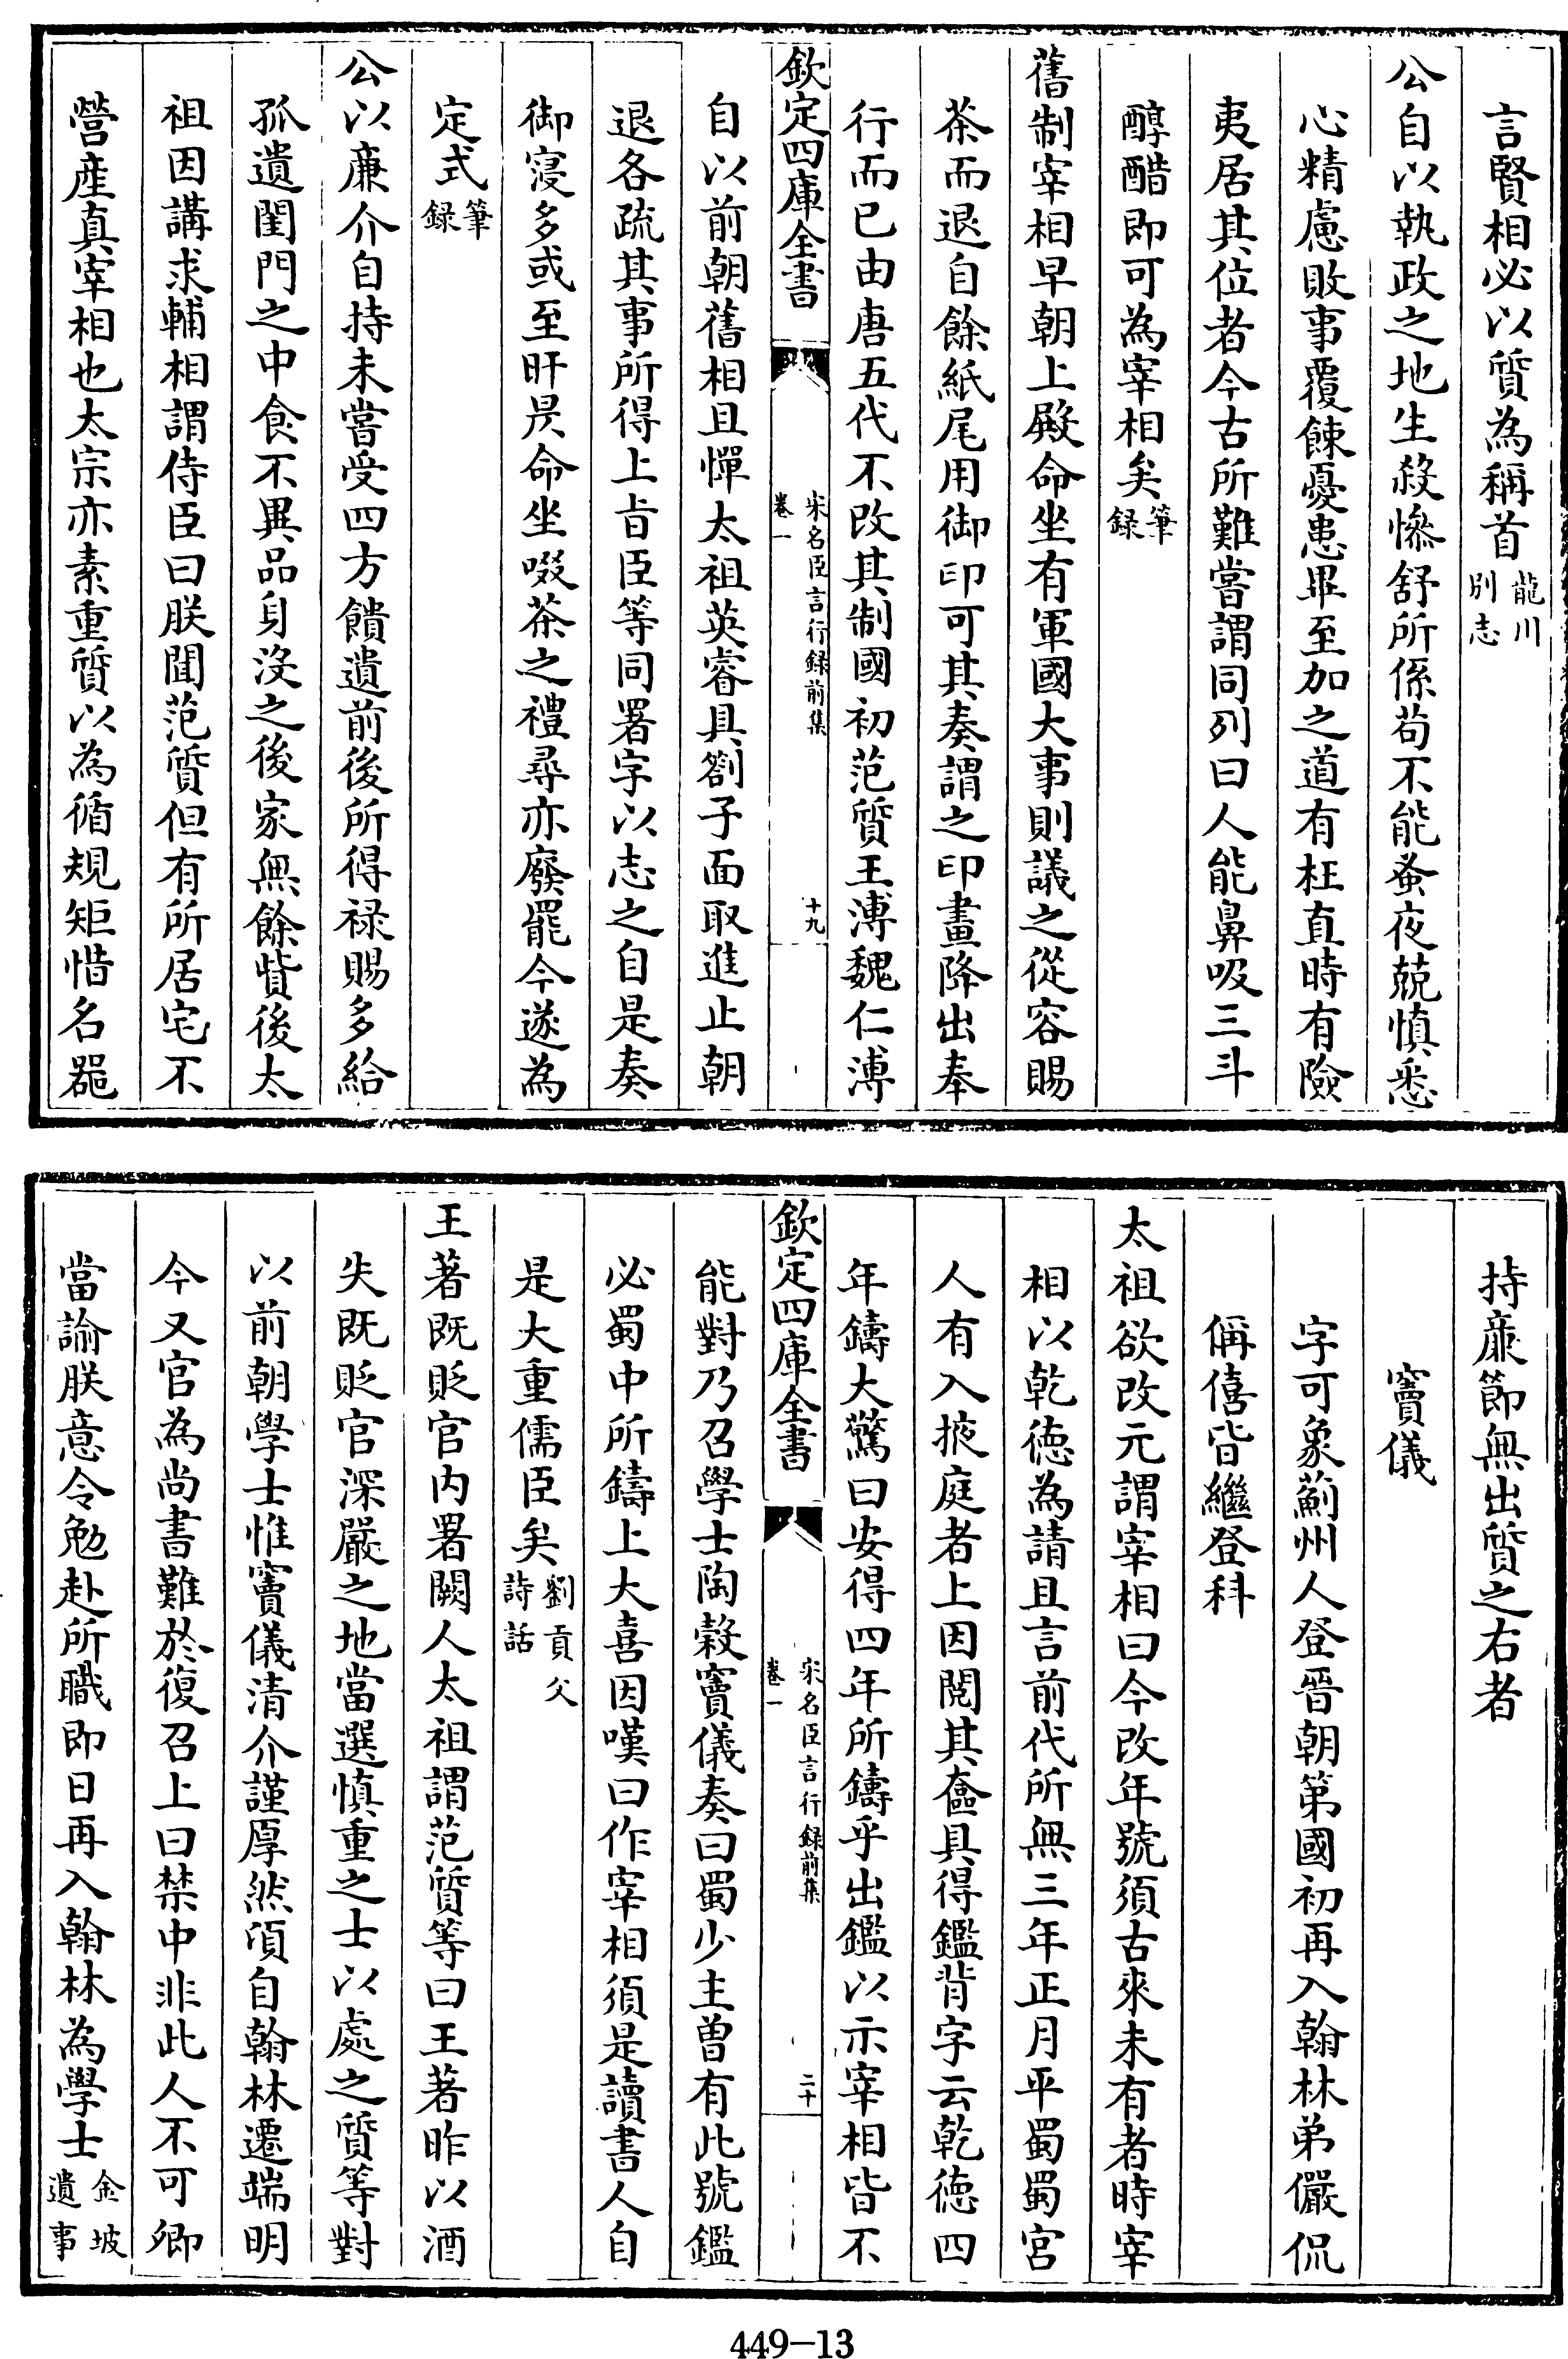 言賢相必以質為稱首龍川別志
公自以執政之地生殺慘舒所係苟不能蚤夜兢慎悉
心精慮敗事覆餗憂患畢至加之道有枉直時有險
夷居其位者今古所難嘗謂同列曰人能鼻吸三斗
醇醋即可為宰相矣筆録
舊制宰相早朝上殿命坐有軍國大事則議之從容賜
茶而退自餘紙尾用御印可其奏謂之印畫降出奉
行而已由唐五代不改其制國初范質王溥魏仁溥
欽定四庫全書
宋名臣言行録前集
卷一
十九
自以前朝舊相且憚太祖英睿具劄子面取進止朝
退各疏其事所得上旨臣等同署字以志之自是奏
御寖多或至旰昃命坐啜茶之禮尋亦廢罷今遂為
定式筆録
公以廉介自持未嘗受四方饋遺前後所得禄賜多給
孤遺閨門之中食不異品身沒之後家無餘貲後太
祖因講求輔相謂侍臣曰朕聞范質但有所居宅不
營産真宰相也太宗亦素重質以為循規矩惜名器
持亷節無出質之右者
竇儀
字可象薊州人登晉朝第國初再入翰林弟儼侃
偁僖皆繼登科
太祖欲改元謂宰相曰今改年號須古來未有者時宰
相以乾徳為請且言前代所無三年正月平蜀蜀宮
人有入掖庭者上因閲其奩具得鑑背字云乾徳四
年鑄大驚曰安得四年所鑄乎出鑑以示宰相皆不
欽定四庫全書
宋名臣言行録前集
卷一
二十
能對乃召學士陶穀竇儀奏曰蜀少主曽有此號鑑
必蜀中所鑄上大喜因嘆曰作宰相須是讀書人自
是大重儒臣矣劉貢父詩話
王著既貶官内署闕人太祖謂范質等曰王著昨以酒
失既貶官深嚴之地當選慎重之士以處之質等對
以前朝學士惟竇儀清介謹厚然頃自翰林遷端明
今又官為尚書難於復召上曰禁中非此人不可卿
當諭朕意令勉赴所職即日再入翰林為學士金坡遺事
449-13